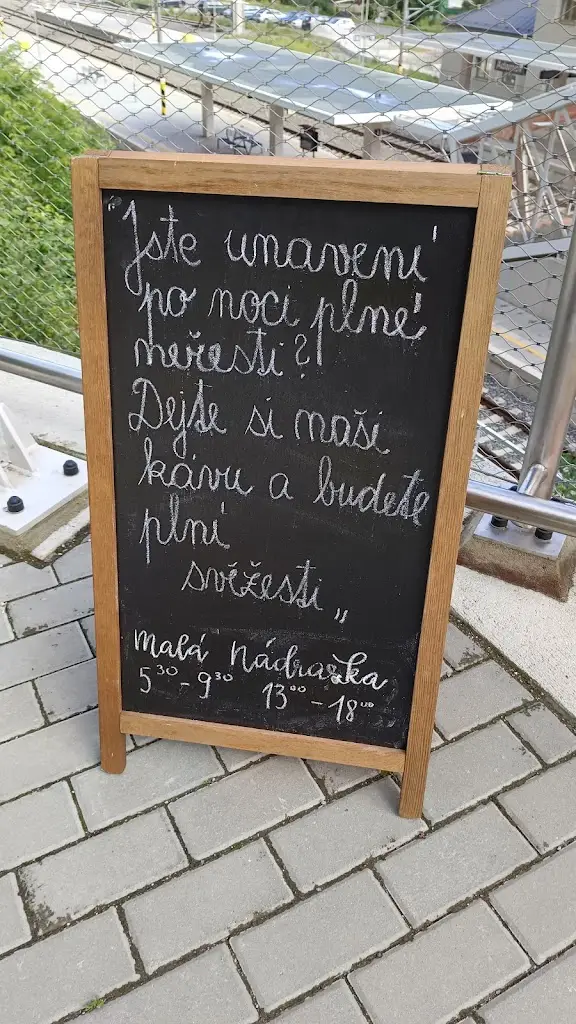 "Jste unavení
po noci plné
neřesti?
Dejte si naši
kávu a budete
plní
svěžesti„
Malá Nádražka
5³⁰ - 9³⁰ 13⁰⁰ - 18⁰⁰